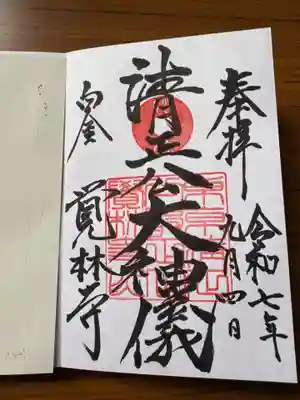 奉拝
令和七年
九月四日
清正公大神儀
白金
覚林寺